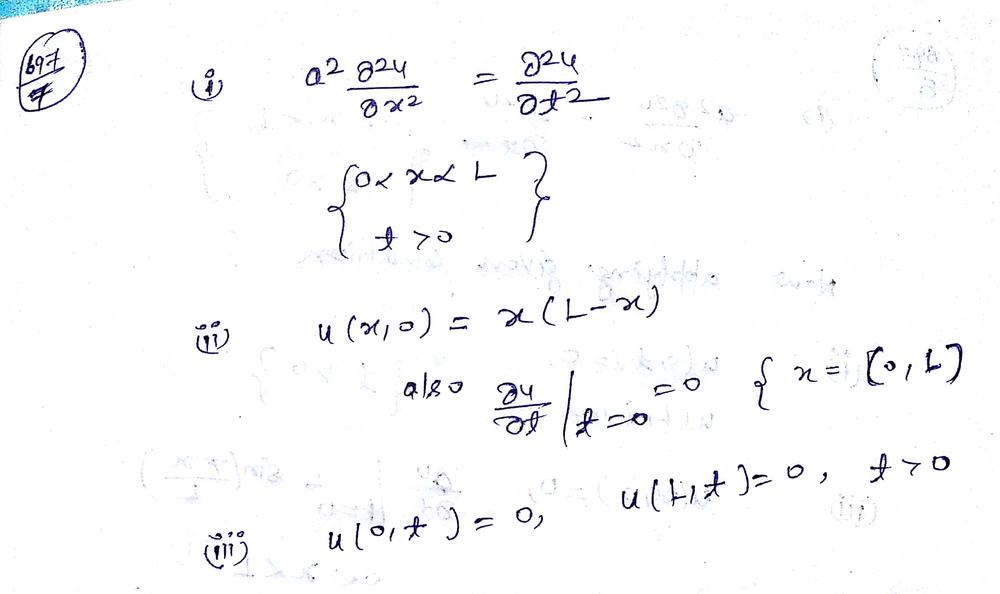 697/7
(i) a² ∂²u/∂x² = ∂²u/∂t²
{ 0 < x < L }
t > 0
(ii) u(x,0) = x(L-x)
also ∂u/∂t | t=0 = 0 { x = [0, L]
(iii) u(0,t) = 0, u(L,t) = 0, t > 0